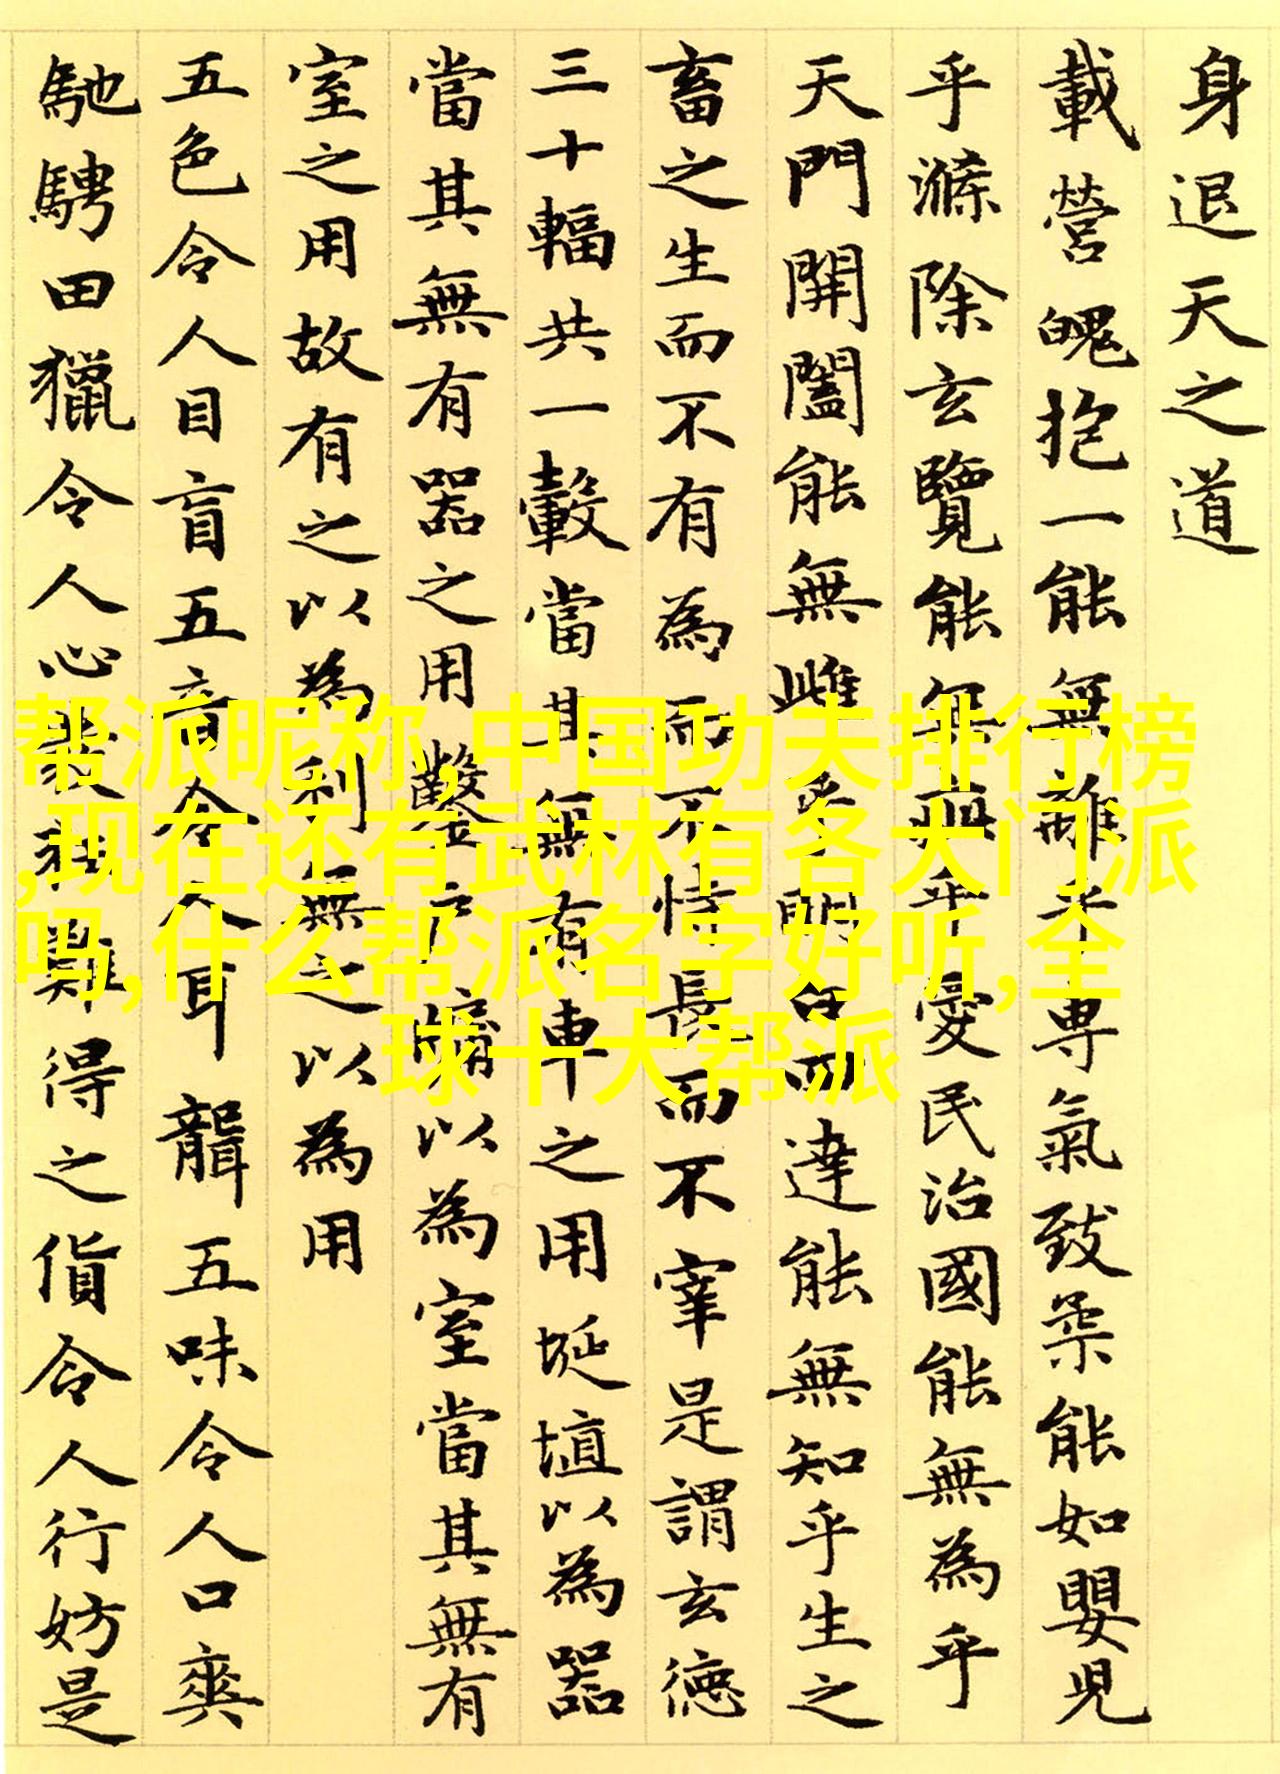 身退天之道
載營魄抱一能無離乎専氣致柔能如嬰児
乎滌除玄覽能無疵乎愛民治國能無為乎
天門開闔能無雌乎明白四達能無知乎生之
畜之生而不有為而不恃長而不宰是謂玄德
三十輻共一轂當其無有車之用埏埴以為器
當其無有器之用鑿戶牖以為室當其無有
室之用故有之以為利無之以為用
五色令人目盲五音令人耳聾五味令人口爽
馳騁田獵令人心發狂難得之貨令人行妨是
帮派昵称,中国功夫排行榜
,现在还有武林有各大门派
吗,什么帮派名字好听,全
球十大帮派